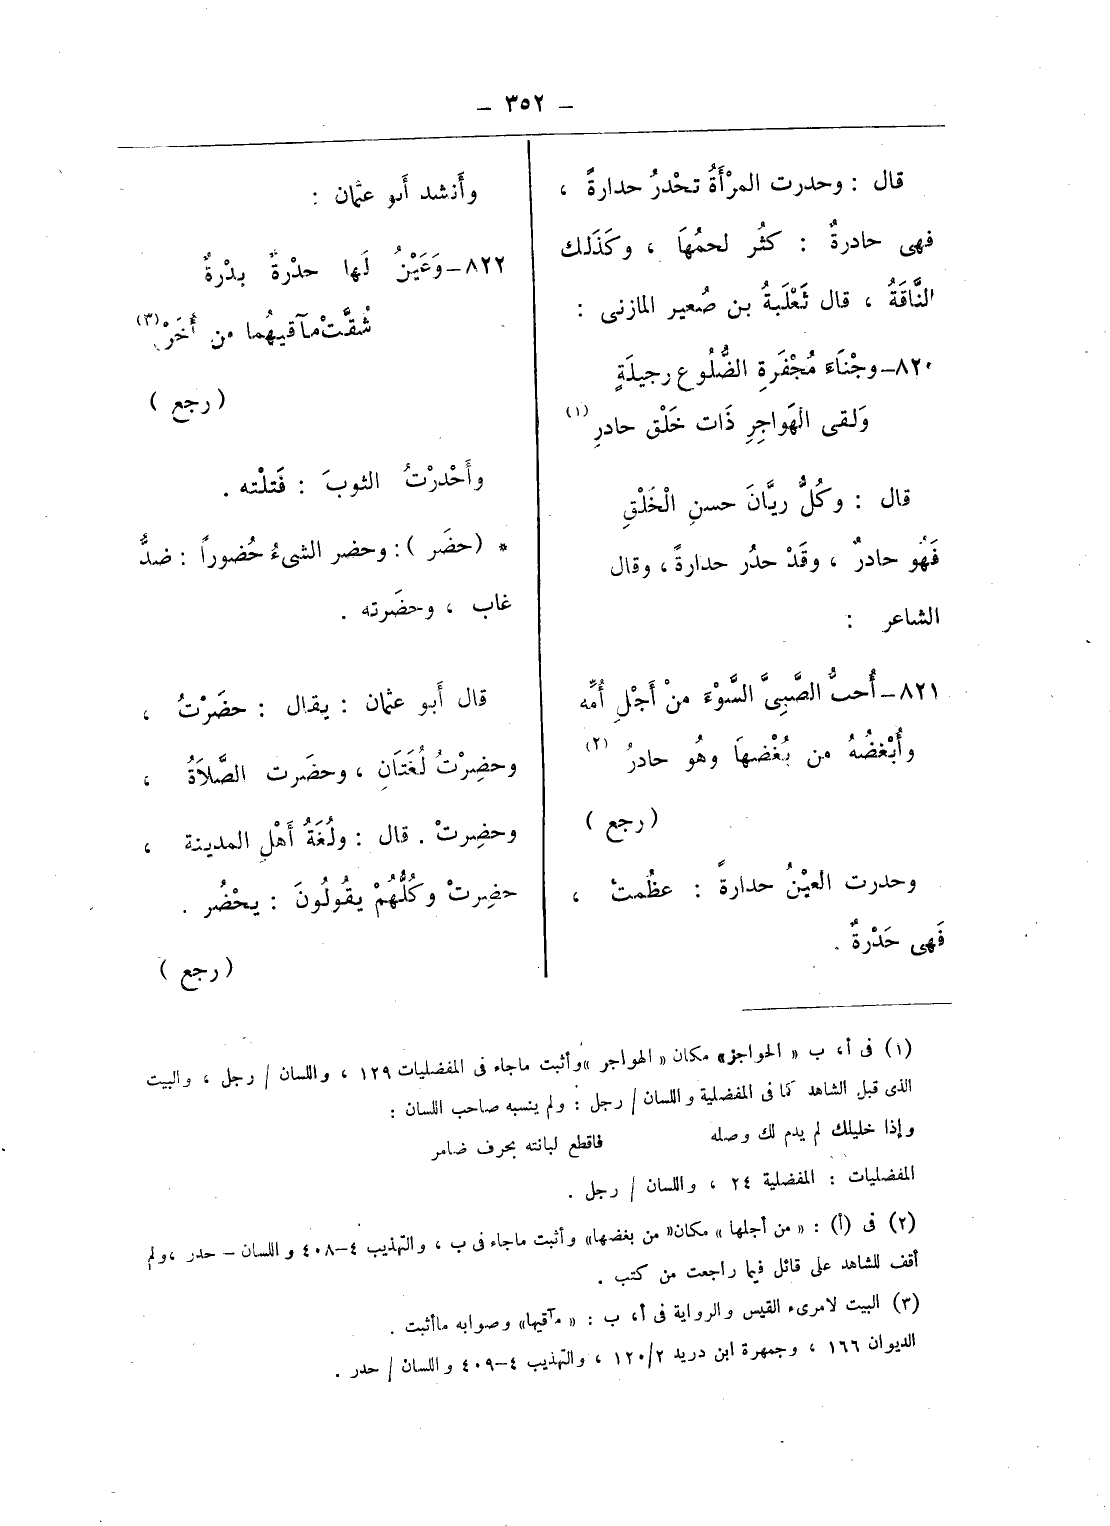 – ٣٥٢ –
قال : وحدرت المرْأَةُ تحْدرُ حدارةً ،
فهى حادرةٌ : كثُر لحمُهَا ، وكَذَلك
النَّاقَةُ ، قال ثَعْلَبةُ بن صُعير المازنى :
٨٢٠–وجْنَاءَ مُجْفَرةِ الضُّلُوع رجيلَةٍ
وَلقى الهَواجِرِ ذَات خَلْق حادرِ (١)
قال : وكُلُّ ريَّانَ حسنِ الْخَلْقِ
فَهُو حادرٌ ، وقَدْ حدُر حدارةً ، وقال
الشاعر :
٨٢١–أُحبُّ الصَّبِىَّ السَّوْءَ منْ أَجْلِ أُمِّه
وأُبْغضُهُ من بُغْضهَا وهُو حادرُ (٢)
(رجع )
وحدرت العيْنُ حدارةً : عظُمتْ ،
فَهى حَدْرةٌ .
وأَنشد أَبو عثمان :
٨٢٢–وَعَيْنُ لَها حدْرةٌ بدْرةٌ
شُقَّتْ مآقيهُما من أُخَرْ (٣)
(رجع )
وأَحْدرْتُ الثوبَ : فَتلْته .
* (حضَر ) : وحضر الشىءُ حُضوراً : ضدُّ
غاب ، وحضَرته .
قال أَبو عثمان : يقال : حضَرْتُ ،
وحضِرْتُ لُغَتَانِ ، وحضَرت الصَّلاَةُ ،
وحضِرتْ . قال : ولُغَةُ أَهْلِ المدينة ،
حضِرتْ وكُلُّهُمْ يقُولُونَ : يحْضُر .
(رجع )
(١) فى أ ، ب « الحواجز» مكان « الهواجر »وأثبت ماجاء فى المفضليات ١٢٩ ، واللسان / رجل ، والبيت
الذى قبل الشاهد كما فى المفضلية واللسان / رجل : ولم ينسبه صاحب اللسان :
وإذا خليلك لم يدم لك وصله فاقطع لبانته بحرف ضامر
المفضليات : المفضلية ٢٤ ، واللسان / رجل .
(٢) فى (أ) : « من أجلها » مكان« من بغضها» وأثبت ماجاء فى ب ، والتهذيب ٤–٤٠٨ و اللسان – حدر ،ولم
أقف للشاهد على قائل فيما راجعت من كتب .
(٣) البيت لامرىء القيس والرواية فى أ ، ب : « مآقيها» وصوابه ماأثبت .
الديوان ١٦٦ ، وجمهرة ابن دريد ١٢٠/٢ ، والتهذيب ٤–٤٠٩ واللسان / حدر .